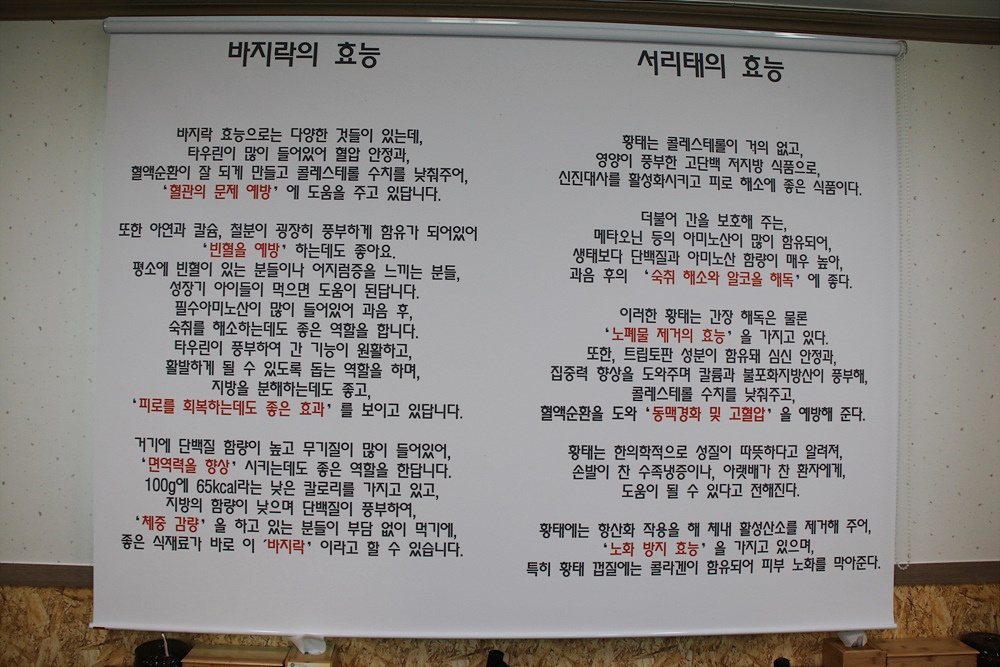 바지락의 효능
바지락 효능으로는 다양한 것들이 있는데,
타우린이 많이 들어있어 혈압 안정과,
혈액순환이 잘 되게 만들고 콜레스테롤 수치를 낮춰주어,
‘혈관의 문제 예방’ 에 도움을 주고 있답니다.
또한 아연과 칼슘, 철분이 굉장히 풍부하게 함유가 되어있어
‘빈혈을 예방’ 하는데도 좋아요.
평소에 빈혈이 있는 분들이나 어지럼증을 느끼는 분들,
성장기 아이들이 먹으면 도움이 된답니다.
필수아미노산이 많이 들어있어 과음 후,
숙취를 해소하는데도 좋은 역할을 합니다.
타우린이 풍부하여 간 기능이 원활하고,
활발하게 될 수 있도록 돕는 역할을 하며,
지방을 분해하는데도 좋고,
‘피로를 회복하는데도 좋은 효과’ 를 보이고 있답니다.
거기에 단백질 함량이 높고 무기질이 많이 들어있어,
‘면역력을 향상’ 시키는데도 좋은 역할을 한답니다.
100g에 65kcal라는 낮은 칼로리를 가지고 있고,
지방의 함량이 낮으며 단백질이 풍부하여,
‘체중 감량’ 을 하고 있는 분들이 부담 없이 먹기에,
좋은 식재료가 바로 이 ‘바지락’ 이라고 할 수 있습니다.
서리태의 효능
황태는 콜레스테롤이 거의 없고,
영양이 풍부한 고단백 저지방 식품으로,
신진대사를 활성화시키고 피로 해소에 좋은 식품이다.
더불어 간을 보호해 주는,
메타오닌 등의 아미노산이 많이 함유되어,
생태보다 단백질과 아미노산 함량이 매우 높아,
과음 후의 ‘숙취 해소와 알코올 해독’ 에 좋다.
이러한 황태는 간장 해독은 물론
‘노폐물 제거의 효능’ 을 가지고 있다.
또한, 트립토판 성분이 함유돼 심신 안정과,
집중력 향상을 도와주며 칼륨과 불포화지방산이 풍부해,
콜레스테롤 수치를 낮춰주고,
혈액순환을 도와 ‘동맥경화 및 고혈압’ 을 예방해 준다.
황태는 한의학적으로 성질이 따뜻하다고 알려져,
손발이 찬 수족냉증이나, 아랫배가 찬 환자에게,
도움이 될 수 있다고 전해진다.
황태에는 항산화 작용을 해 체내 활성산소를 제거해 주어,
‘노화 방지 효능’ 을 가지고 있으며,
특히 황태 껍질에는 콜라겐이 함유되어 피부 노화를 막아준다.